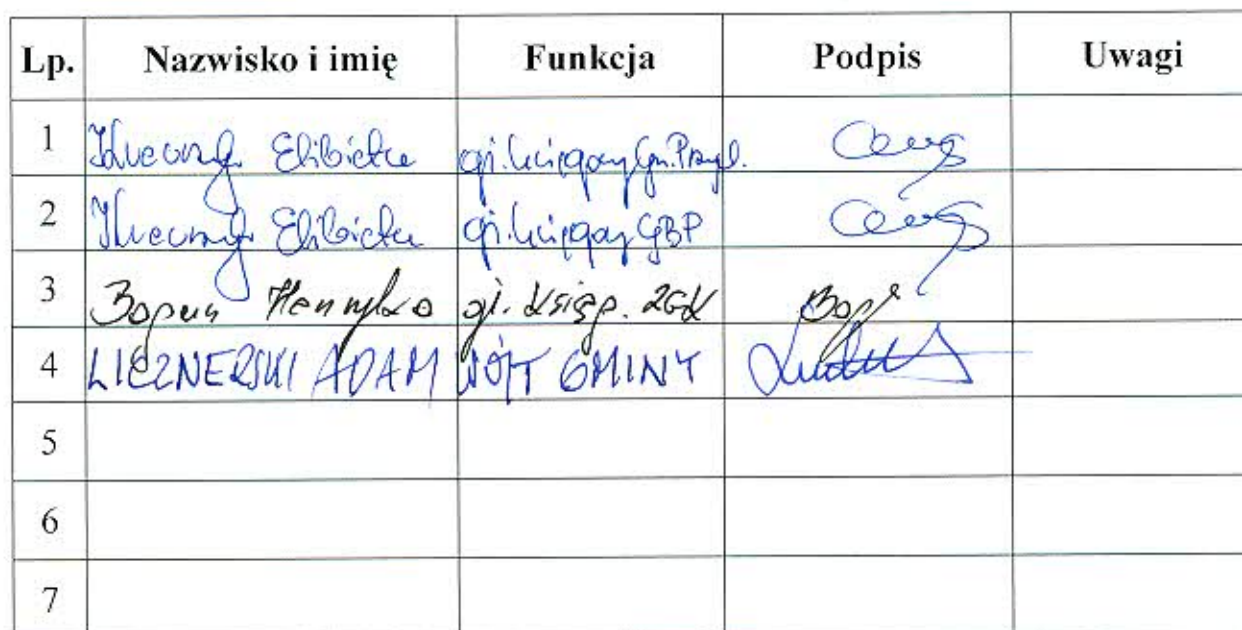 Lp. Nazwisko i imię Funkcja Podpis Uwagi
1 Elżbieta gł. księgowy Gm. Przyl.
2 Elżbieta gł. księgowy GBP
3 Henryka gł. księg. ZGK
4 LICZNERSKI ADAM WÓJT GMINY
5
6
7